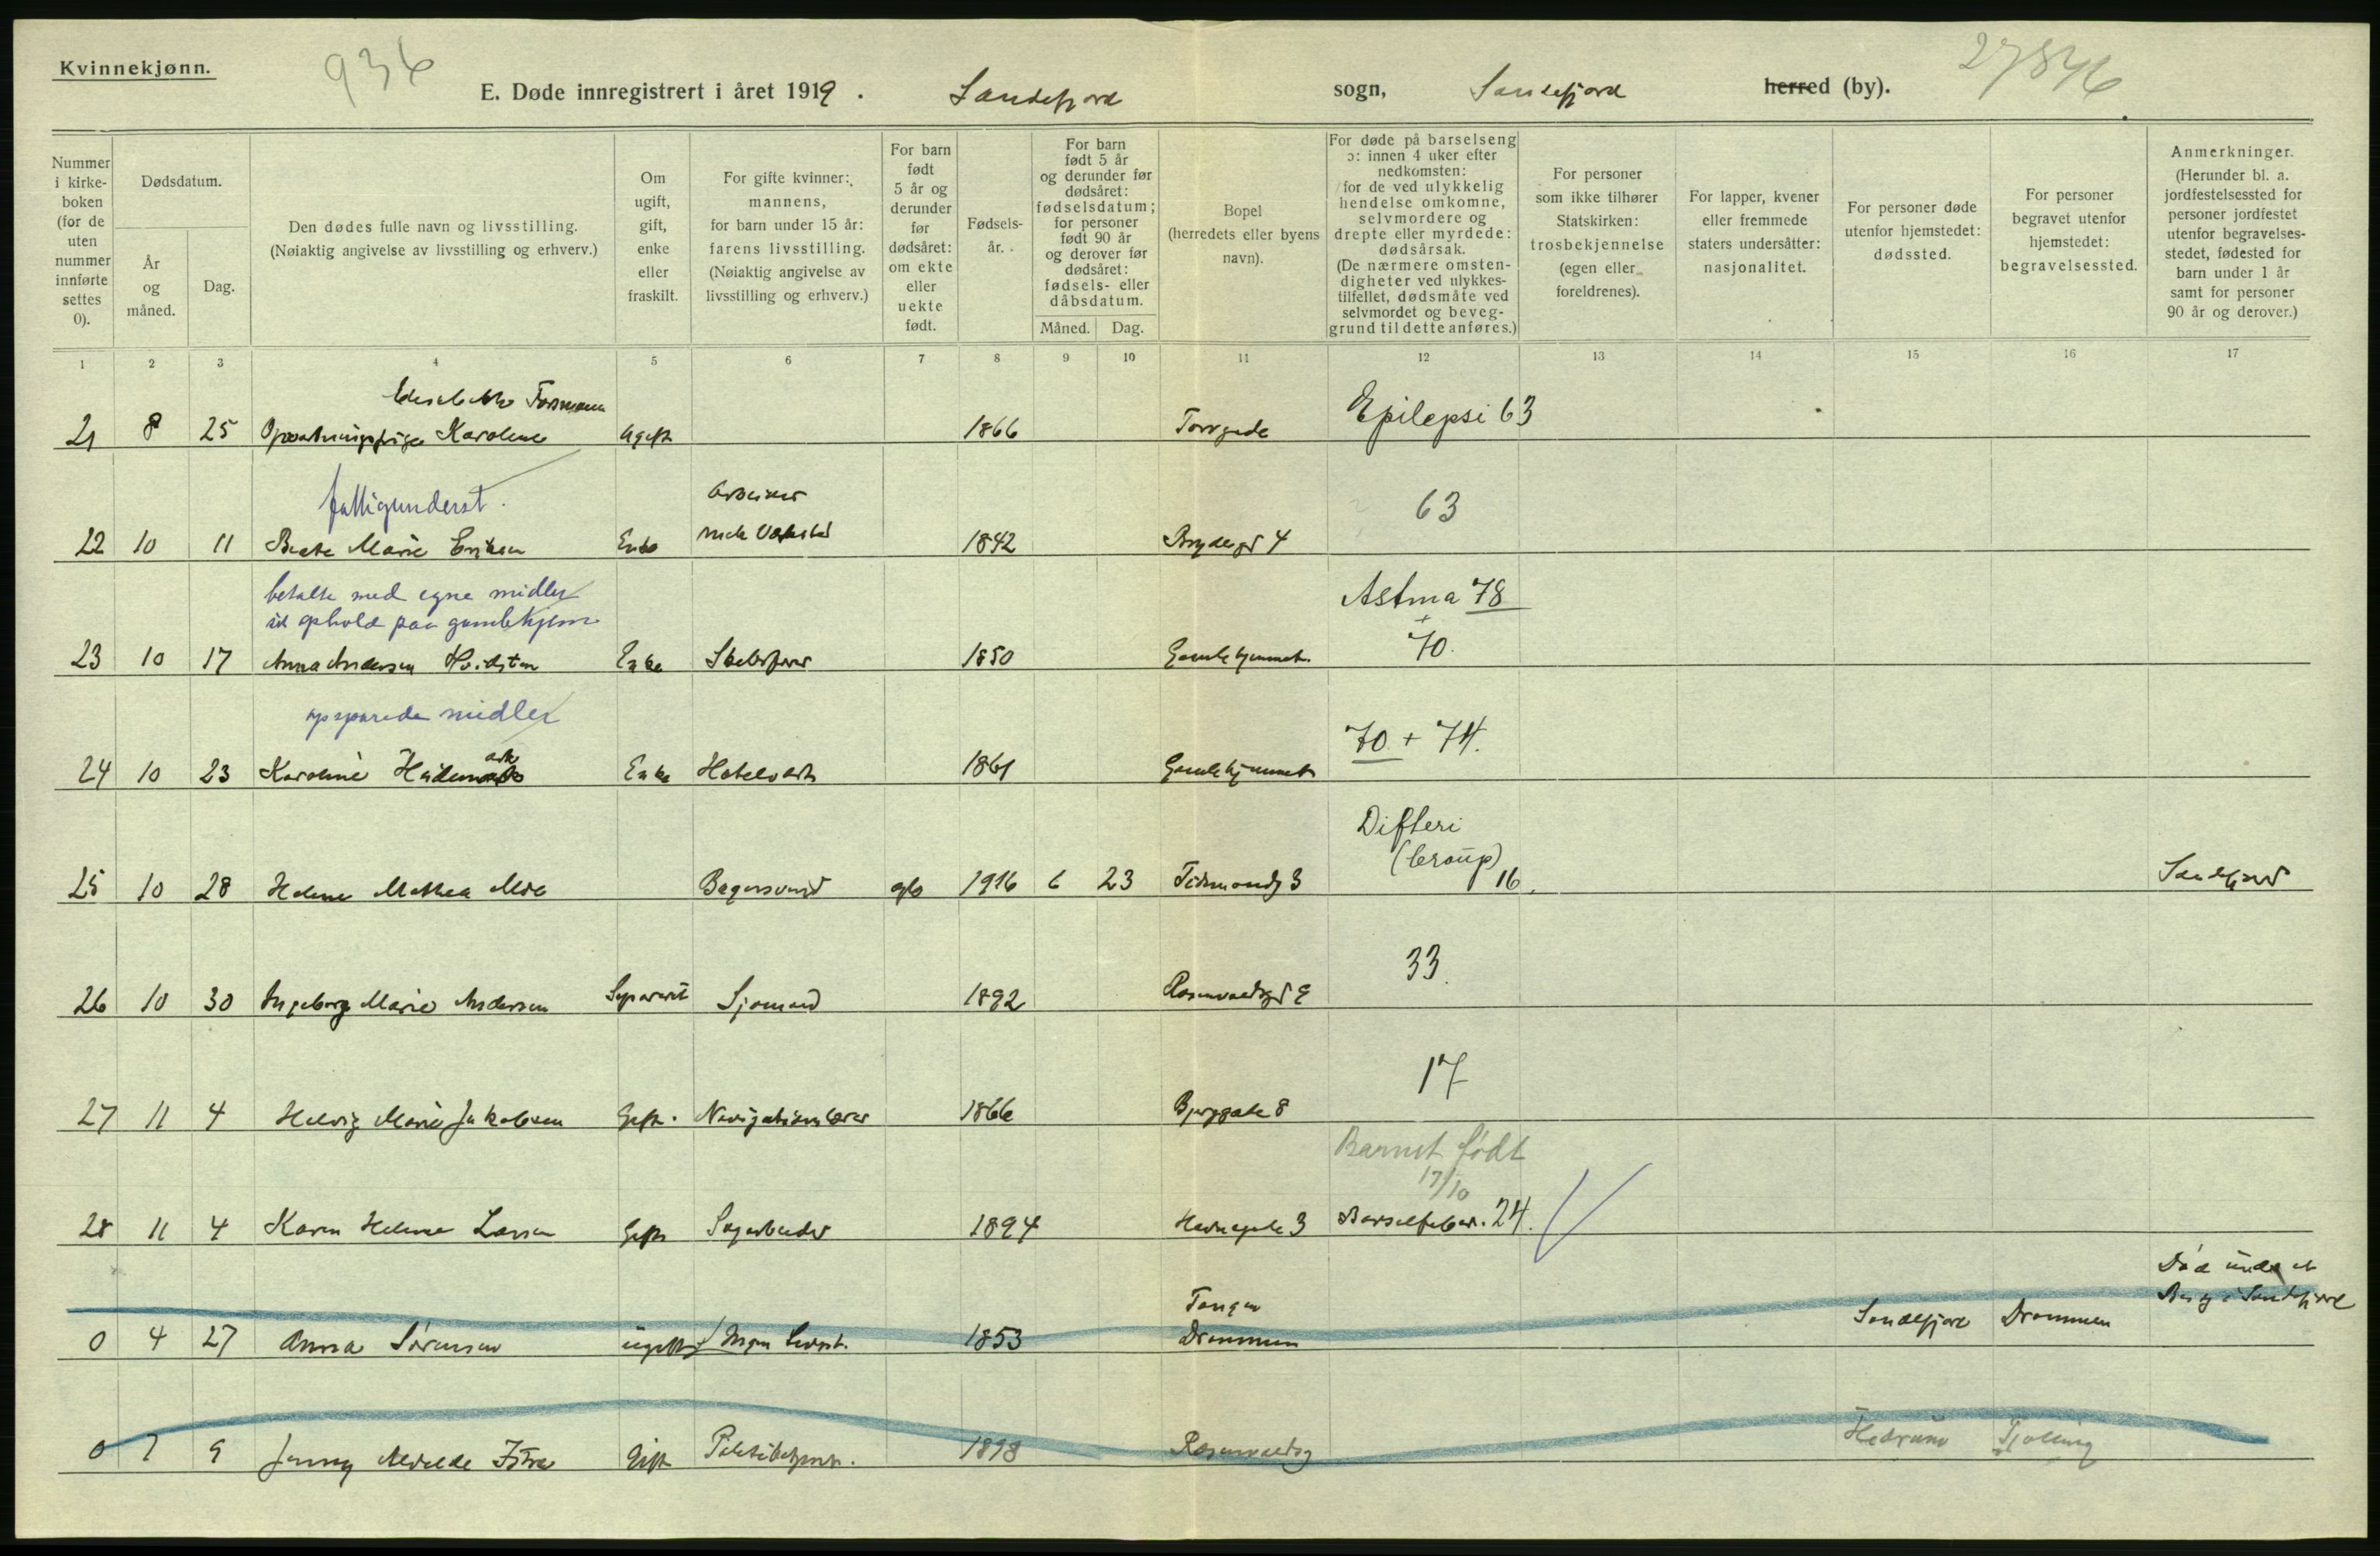 Kvinnekjønn.
936
E. Døde innregistrert i året 1919. Sandefjord sogn, Sandefjord herred (by).
27846
Nummer i kirke- boken (for de uten nummer innførte settes 0).
Dødsdatum.
År og måned.
Dag.
Den dødes fulle navn og livsstilling.
(Nøiaktig angivelse av livsstilling og erhverv.)
Om ugift, gift, enke eller fraskilt.
For gifte kvinner: mannens, for barn under 15 år: farens livsstilling. (Nøiaktig angivelse av livsstilling og erhverv.)
For barn født 5 år og derunder før dødsåret: om ekte eller uekte født.
Fødsels- år.
For barn født 5 år og derunder før dødsåret: fødselsdatum; for personer født 90 år og derover før dødsåret: fødsels- eller dåbsdatum.
Måned. Dag.
Bopel (herredets eller byens navn).
For døde på barselseng ɔ: innen 4 uker efter nedkomsten: for de ved ulykkelig hendelse omkomne, selvmordere og drepte eller myrdede: dødsårsak. (De nærmere omsten- digheter ved ulykkes- tilfellet, dødsmåte ved selvmordet og beveg- grund til dette anføres.)
For personer som ikke tilhører Statskirken: trosbekjennelse (egen eller foreldrenes).
For lapper, kvener eller fremmede staters undersåtter: nasjonalitet.
For personer døde utenfor hjemstedet: dødssted.
For personer begravet utenfor hjemstedet: begravelsessted.
Anmerkninger. (Herunder bl. a. jordfestelsessted for personer jordfestet utenfor begravelses- stedet, fødested for barn under 1 år samt for personer 90 år og derover.)
1 2 3 4 5 6 7 8 9 10 11 12 13 14 15 16 17
21 8 25 Karoline Ugift 1866 Torvgade Epilepsi 63
fattigunderst.
Arbeider
22 10 11 Beate Marie Eriksen Enke mek Værksted 1842 Brydegd 4 63
betalte med egne midler
sit ophold paa gamlehjem
Astma 78
23 10 17 Anna Andersen Hvidsten Enke 1850 Gamlehjemmet + 70.
opsparede midler
24 10 23 Karoline Enke Hotelvert 1861 Gamlehjemmet 70 + 74.
Difteri
(Croup)
25 10 28 Helene Mathea Moe Bagersvend 1916 6 23 16. Sandefjord
26 10 30 Ingeborg Marie Andersen Separert Sjømand 1892 33.
27 11 4 Helvig Marie Jakobsen Gift. Navigationslærer 1866 Bjerggate 8 17
Barnet født
17/10
28 11 4 Karen Helene Larsen Gift 1894 3 Barselfeber. 24.
Død under et
Besøg i Sandefjord
Tangen
0 4 27 Anna Sørensen ugift Ingen 1853 Drammen Sandefjord Drammen
0 7 9 Jenny Alvilde Gift Politibetjent. 1898 Rosenvoldsg Hedrum Tjølling